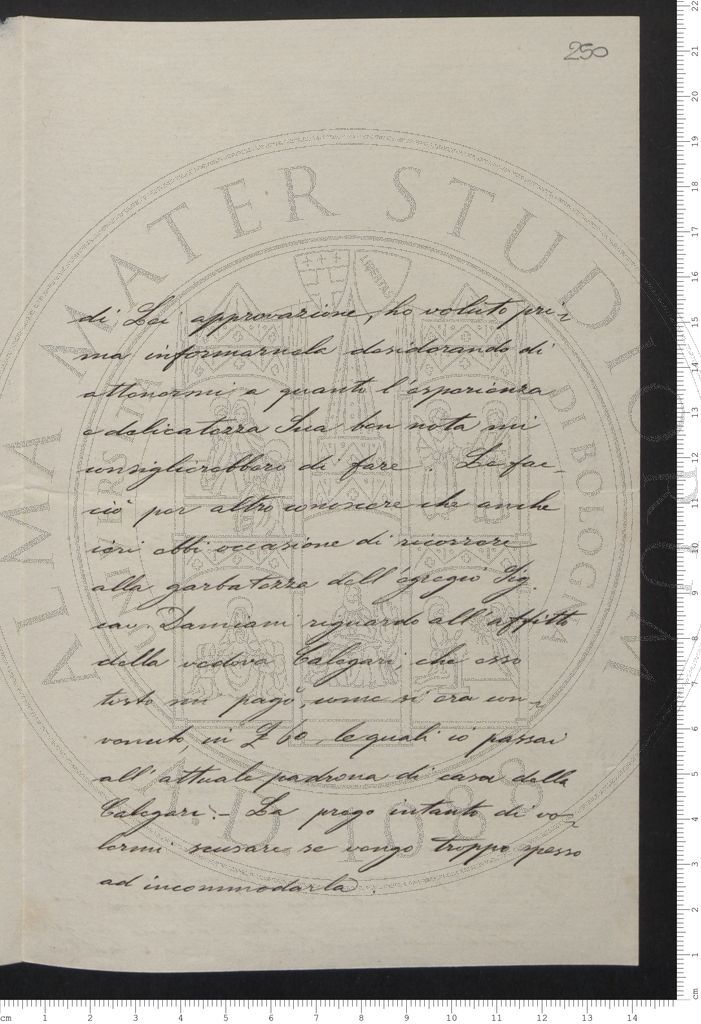 250
di Lei approvazione, ho voluto pri-
ma informarnela desiderando di
attenermi a quanto l'esperienza
e delicatezza Sua ben nota mi
consiglierebbero di fare. Le fac-
cio per altro conoscere che anche
ieri ebbi occasione di ricorrere
alla garbatezza dell'egregio Sig.
cav. Damiani riguardo all'affitto
della vedova Calegari, che esso
tosto mi pagò, come si era con-
venuto, in £ 60, le quali io passai
all'attuale padrona di casa della
Calegari. - La prego intanto di vo-
lermi scusare se vengo troppo spesso
ad incommodarla.
ALMA MATER STUDIORUM
A.D. 1088
LIBERTAS